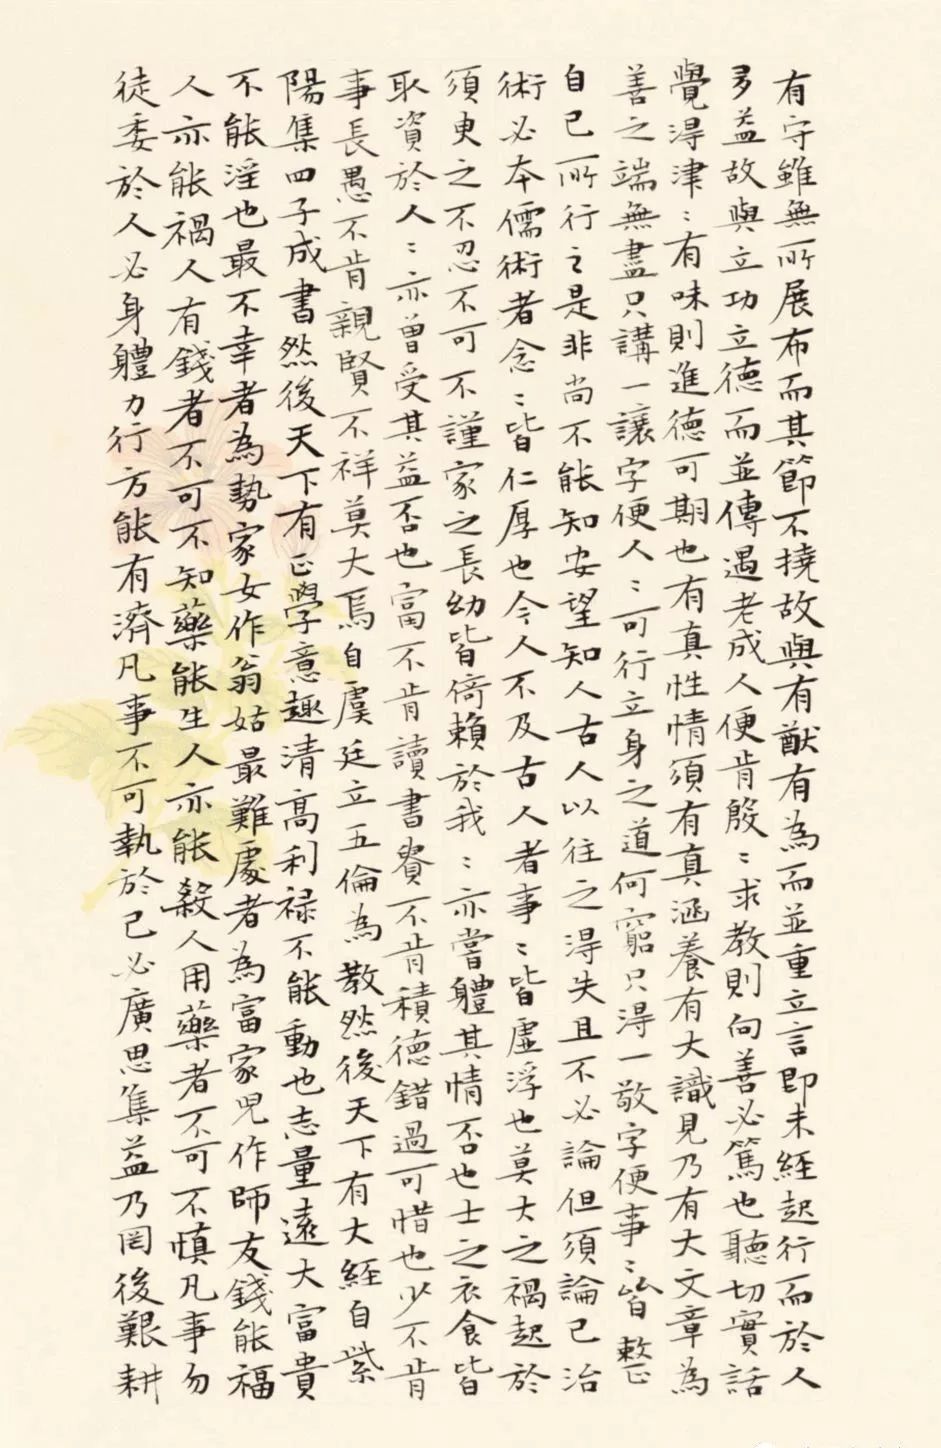 有守雖無所展布而其節不撓故與有猷有為而並重立言即未經起行而於人
多益故與立功立德而並傳遇老成人便肯殷〻求教則向善必篤也聽切實話
覺得津〻有味則進德可期也有真性情須有真涵養有大識見乃有大文章為
善之端無盡只講一讓字便人〻可行立身之道何窮只得一敬字便事〻皆整
自己所行之是非尚不能知安望知人古人以往之得失且不必論但須論己治
術必本儒術者念〻皆仁厚也今人不及古人者事〻皆虛浮也莫大之禍起於
須臾之不忍不可不謹家之長幼皆倚賴於我〻亦嘗體其情否也士之衣食皆
取資於人〻亦曾受其益否也富不肯讀書貴不肯積德錯過可惜也少不肯
事長愚不肯親賢不祥莫大焉自虞廷立五倫為教然後天下有大經自紫
陽集四子成書然後天下有正學意趣清高利祿不能動也志量遠大富貴
不能淫也最不幸者為勢家女作翁姑最難處者為富家兒作師友錢能福
人亦能禍人有錢者不可不知藥能生人亦能殺人用藥者不可不慎凡事勿
徒委於人必身體力行方能有濟凡事不可執於己必廣思集益乃罔後艱耕